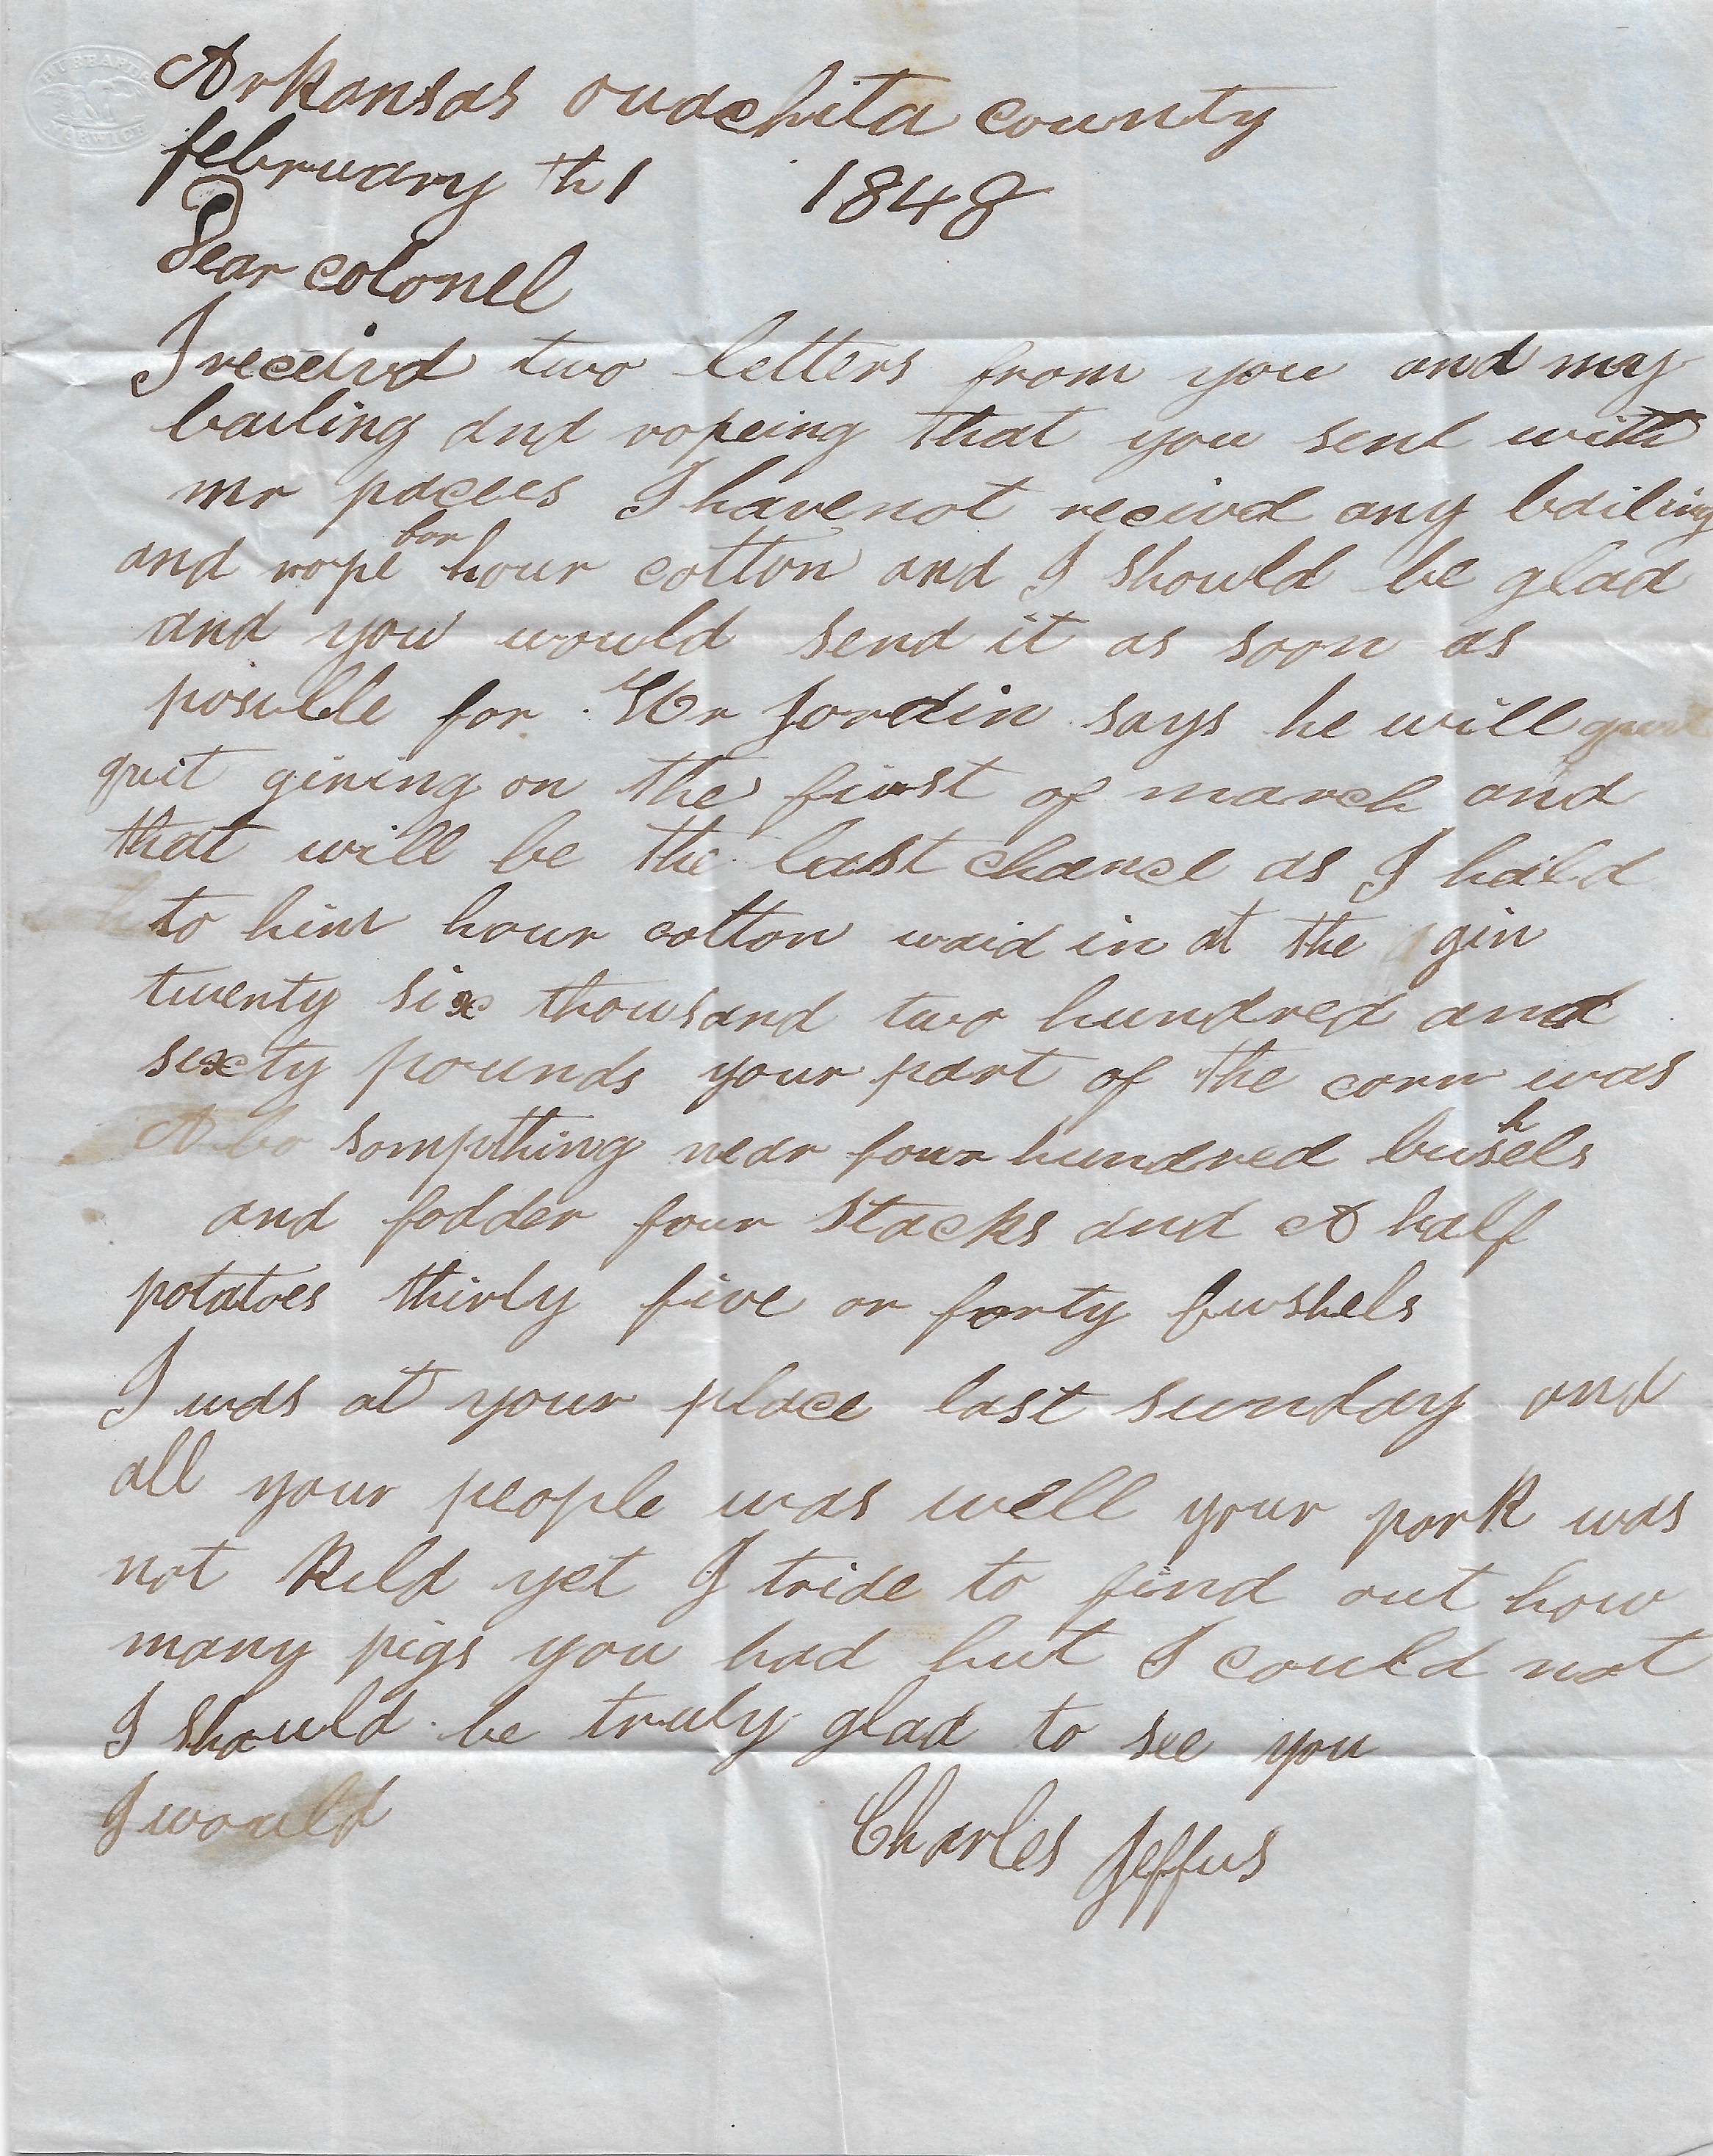 HUBBARD
Arkansas ouachita county
february th 1 1848
Dear colonel
I receivd two letters from you and my
bailing and ropeing that you sent with
mr paces I have not recived any bailing
and rope for hour cotton and I should be glad
and you would send it as soon as
posible for Mr Jordin says he will
quit gining on the first of march and
that will be the last chance as I haild
to him hour cotton waid in at the gin
twenty six thousand two hundred and
sixty pounds your part of the corn was
Abo sompthing near four hundred bushels
and fodder four stacks and A half
potatoes thirty five or forty bushels
I was at your place last sunday and
all your people was well your pork was
not kild yet I tride to find out how
many pigs you had but I could not
I should be truly glad to see you
I would
Charles Jeffus